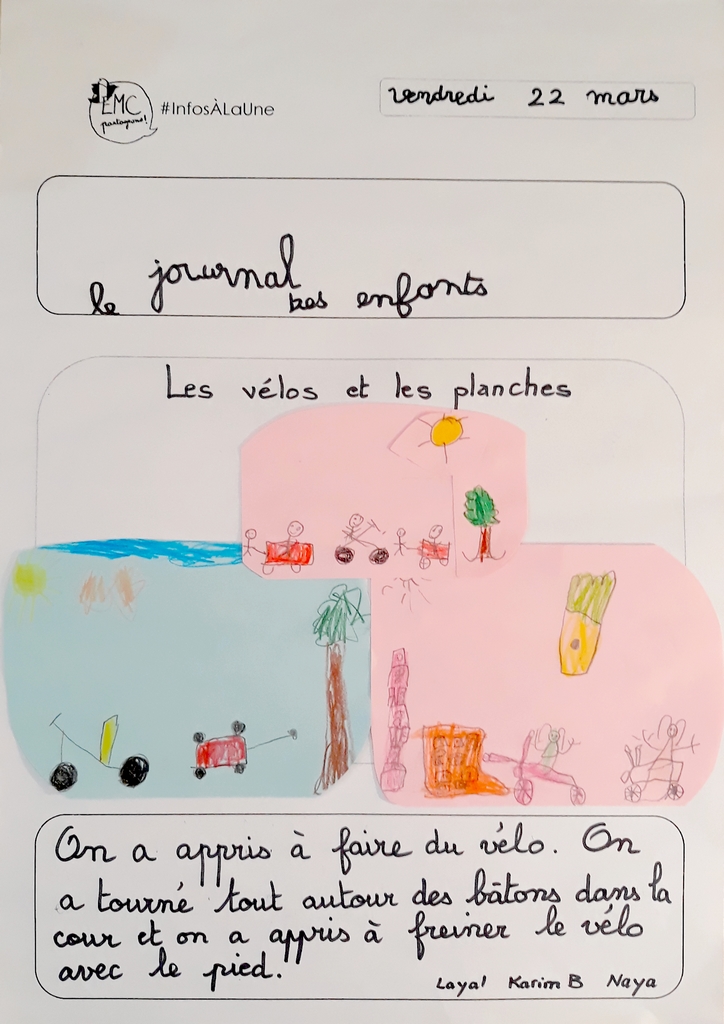 EMC
partageons!
#InfosÀLaUne
vendredi 22 mars
le journal des enfants
Les vélos et les planches
On a appris à faire du vélo. On
a tourné tout autour des bâtons dans la
cour et on a appris à freiner le vélo
avec le pied.
Layal Karim B Naya